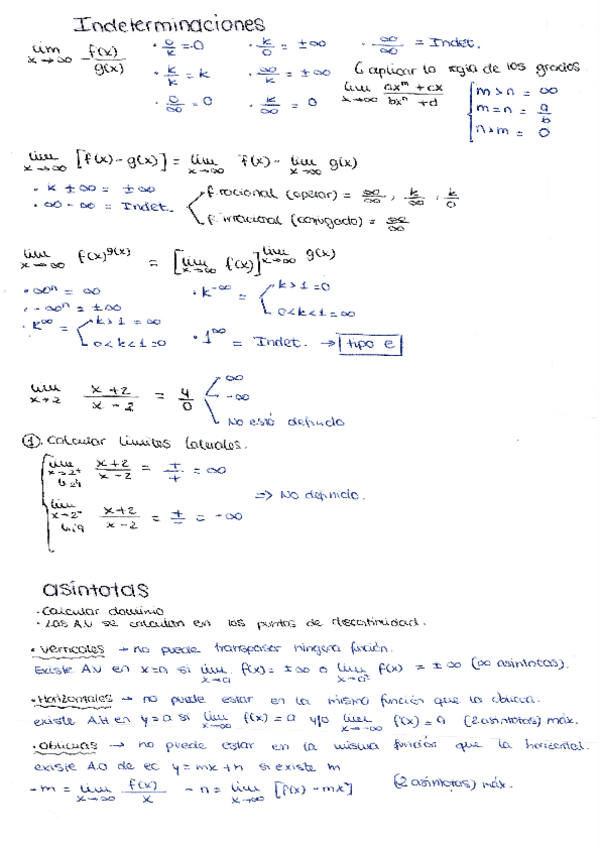 Indeterminaciones
lim x→∞ f(x)/g(x) · 0/k = 0 · k/0 = ±∞ · ∞/∞ = Indet.
· k/k = k · ∞/k = ±∞ ↳ aplicar la regla de los grados
· 0/∞ = 0 · k/∞ = 0 lim x→∞ (ax^m + cx)/(bx^n + d) { m>n = ∞
m=n = a/b
n>m = 0
lim x→∞ [f(x) - g(x)] = lim x→∞ f(x) - lim x→∞ g(x)
· k ± ∞ = ±∞
· ∞ - ∞ = Indet. f. racional (operar) = ∞/∞, k/∞, k/0
f. irracional (conjugado) = ∞/∞
lim x→∞ f(x)^g(x) = [lim x→∞ f(x)]^lim x→∞ g(x)
· ∞^n = ∞ · k^-∞ = k>1 = 0
· -∞^n = ±∞ 0<k<1 = ∞
· k^∞ = k>1 = ∞
0<k<1 = 0 · 1^∞ = Indet. → tipo e
lim x→2 (x+2)/(x-2) = 4/0 ∞
-∞
No está definido
① Calcular límites laterales.
lim x→2+ (x+2)/(x-2) = +/+ = ∞
⇒ No definido.
lim x→2- (x+2)/(x-2) = +/- = -∞
asíntotas
· Calcular dominio
· Las A.V se calculan en los puntos de discontinuidad.
· Verticales → no puede transpasar ninguna función.
Existe A.V en x=a si lim f(x) = ±∞ o lim f(x) = ±∞ (∞ asíntotas).
· Horizontales → no puede estar en la misma función que la oblicua.
existe A.H en y=a si lim x→∞ f(x) = a y/o lim x→-∞ f(x) = a (2 asíntotas) máx.
· Oblicuas → no puede estar en la misma función que la horizontal.
existe A.O de ec y=mx+n si existe m
- m = lim x→∞ f(x)/x - n = lim x→∞ [f(x) - mx] (2 asíntotas) máx.